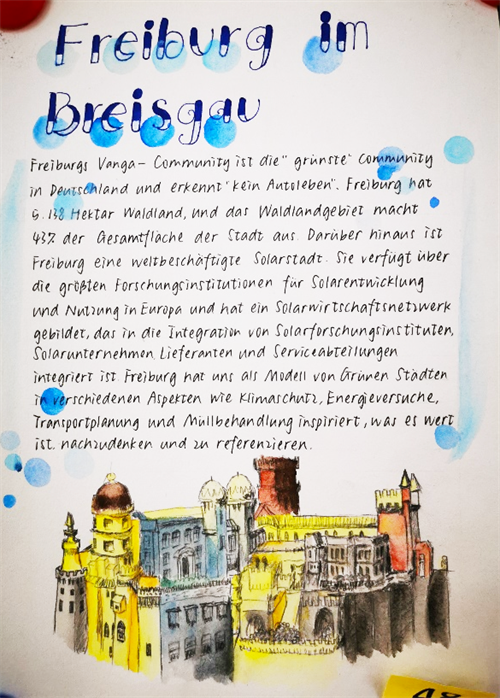 Freiburg im
Breisgau
Freiburgs Vanga- Community ist die "grünste" Community
in Deutschland und erkennt "kein Autoleben". Freiburg hat
5.138 Hektar Waldland, und das Waldlandgebiet macht
43% der Gesamtfläche der Stadt aus. Darüber hinaus ist
Freiburg eine weltbeschäftigte Solarstadt. Sie verfügt über
die größten Forschungsinstitutionen für Solarentwicklung
und Nutzung in Europa und hat ein Solarwirtschaftsnetzwerk
gebildet, das in die Integration von Solarforschungsinstituten,
Solarunternehmen. Lieferanten und Serviceabteilungen
integriert ist. Freiburg hat uns als Modell von Grünen Städten
in verschiedenen Aspekten wie Klimaschutz, Energieversuche,
Transportplanung und Müllbehandlung inspiriert, was es wert
ist. nachzudenken und zu referenzieren.